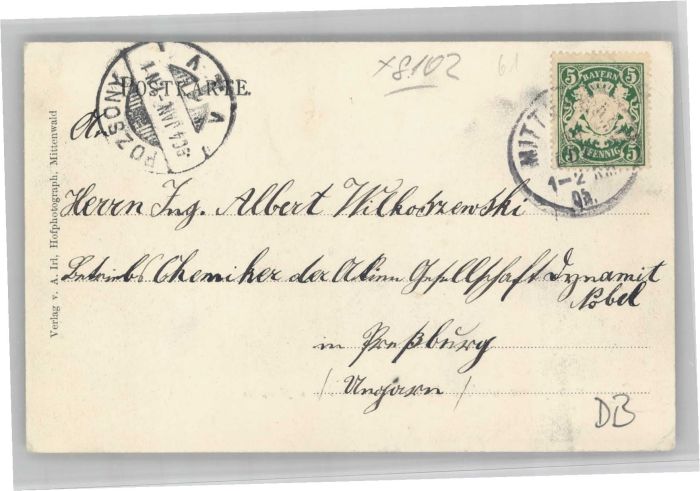 ×8102
61
5 BAYERN 5
5 PFENNIG 5
POSTKARTE.
POZSONY
MITT
1-2
An
Herrn Ing. Albert Wilkoszewski
Betriebs Chemiker der Aktien Gesellschaft Dynamit
Nobel
in Preßburg
/ Ungarn /
DB
Verlag v. A. Irl, Hofphotograph, Mittenwald